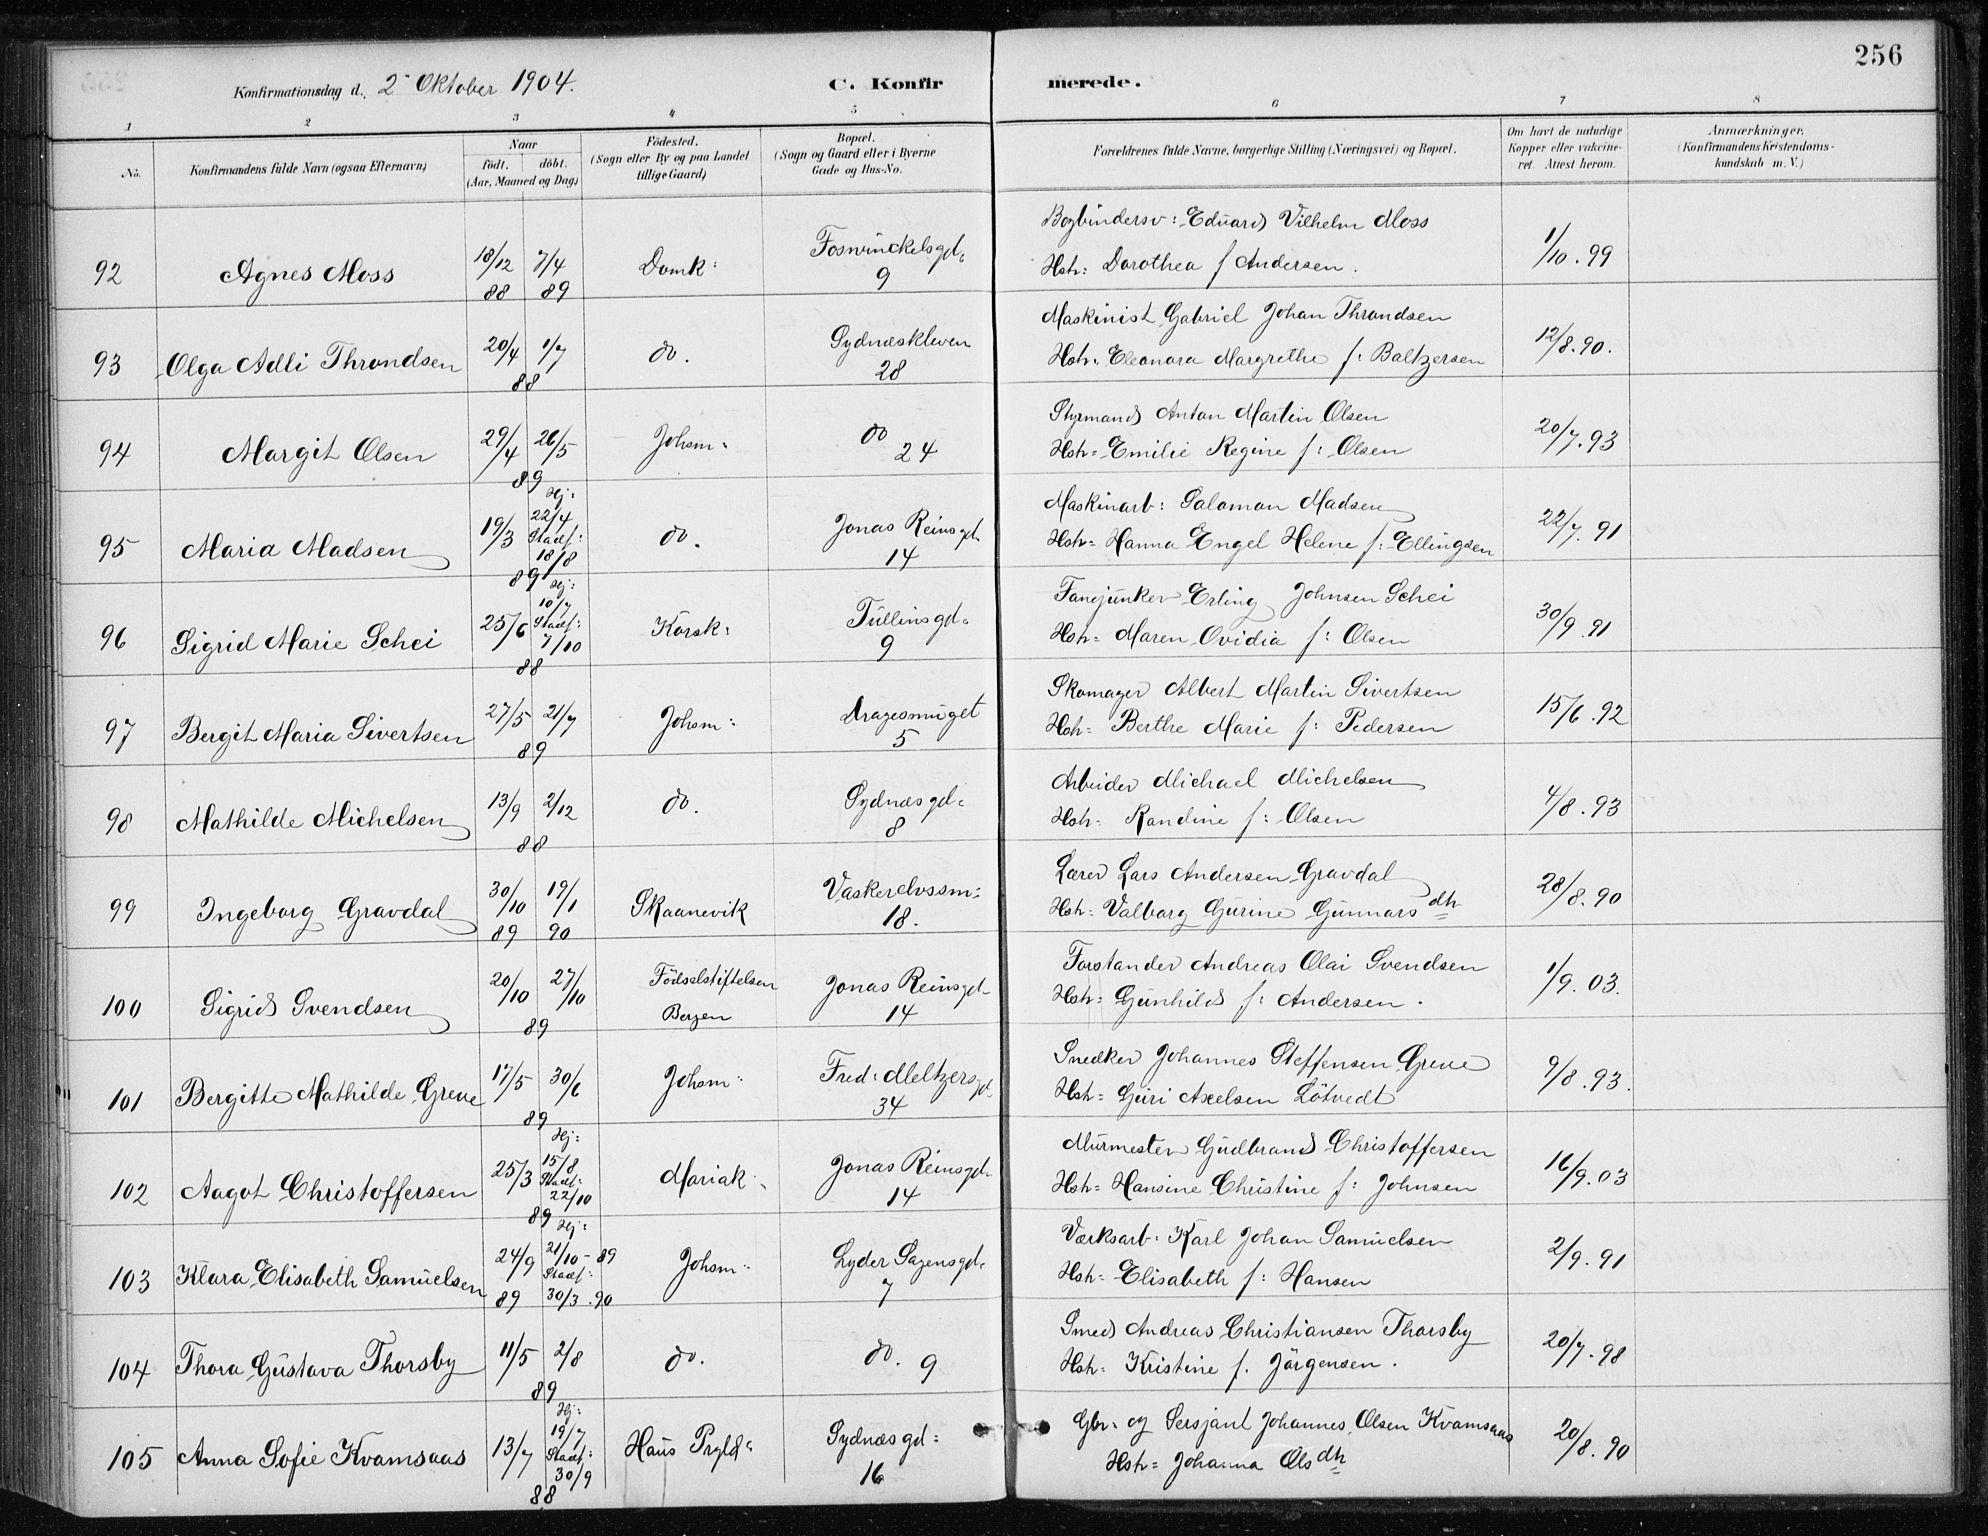 256
Konfirmationsdag d. 2 Oktober 1904.
C. Konfir
merede.
1 2 3 4 5 6 7 8
No.
Konfirmandens fulde Navn (ogsaa Efternavn)
Naar
født. døbt.
(Aar, Maaned og Dag)
Fødested.
(Sogn eller By og paa Landet
tillige Gaard)
Bopæl.
(Sogn og Gaard eller i Byerne
Gade og Hus-No.
Forældrenes fulde Navne, borgerlige Stilling (Næringsvei) og Bopæl.
Om havt de naturlige
Kopper eller vakcine-
ret. Attest herom.
Anmærkninger.
(Konfirmandens Kristendoms-
kundskab m. V.)
92 Agnes Moss 18/12 88 7/4 89 Domk: Foswinckelsgd. 9
Bogbindersv: Eduard Vilhelm Moss
Hstr: Dorothea f Andersen.
1/10.99
93 Olga Adli Throndsen 20/4 1/7 88 do. Sydnæskleven 28
Maskinist Gabriel Johan Throndsen
Hstr: Eleonora Margrethe f: Baltzersen
12/8.90.
94 Margit Olsen 29/4 26/5 89 Johsm: do 24
Styrmand Anton Martin Olsen
Hstr: Emilie Regine f: Olsen
20/7.93
95 Maria Madsen 19/3 Hj: 22/4 Stadf: 18/8 89 do. Jonas Reinsgd. 14
Maskinarb: Salomon Madsen
Hstr: Hanna Engel Helene f: Ellingsen
22/7.91
96 Sigrid Marie Schei 25/6 Hj: 10/7 Stadf: 7/10 88 Korsk: Tullinsgd. 9
Fanejunker Erling Johnsen Schei
Hstr: Maren Ovidia f: Olsen
30/9.91
97 Bergit Maria Sivertsen 27/5 21/7 89 Johsm: Dragesmuget 5
Skomager Albert Martin Sivertsen
Hstr: Berthe Marie f: Pedersen
15/6.92
98 Mathilde Michelsen 13/9 2/12 88 do. Sydnæsgd: 8
Arbeider Michael Michelsen
Hstr: Randine f: Olsen
4/8.93
99 Ingeborg Gravdal 30/10 89 19/1 90 Skaanevik Vaskerelvssm: 18.
Lærer Lars Andersen Gravdal
Hstr: Valborg Gurine Gunnarsdtr
28/8.90
100 Sigrid Svendsen 20/10 27/10 89 Fødselstiftelsen Bergen Jonas Reinsgd. 14
Forstander Andreas Olai Svendsen
Hstr: Gunhild f: Andersen.
1/9.03.
101 Bergitte Mathilde Greve 17/5 30/6 89 Johsm: Fred: Meltzersgd. 34
Snedker Johannes Steffensen Greve
Hstr: Guri Axelsen Løtvedt
9/8.93.
102 Aagot Christoffersen 25/3 Hj: 15/8 Stadf: 22/10 89 Mariak: Jonas Reinsgd. 14
Murmester Gudbrand Christoffersen
Hstr: Hansine Christine f: Johnsen
16/9.03
103 Klara Elisabeth Samuelsen 24/9 89 Hj: 21/10-89 Stadf: 30/3.90 Johsm: Lyder Sagensgd. 7
Værksarb: Karl Johan Samuelsen
Hstr: Elisabeth f: Hansen
2/9.91
104 Thora Gustava Thorsby 11/5 2/8 89 do. do. 9
Smed Andreas Christiansen Thorsby
Hstr: Kristine f. Jørgensen.
20/7.98
105 Anna Sofie Kvamsaas 13/7 Hj: 19/7 Stadf: 30/9 88 Haus Prgld: Sydnæsgd: 16
Gbr: og Sersjant Johannes Olsen Kvamsaas
Hstr: Johanna Olsdtr
20/8.90